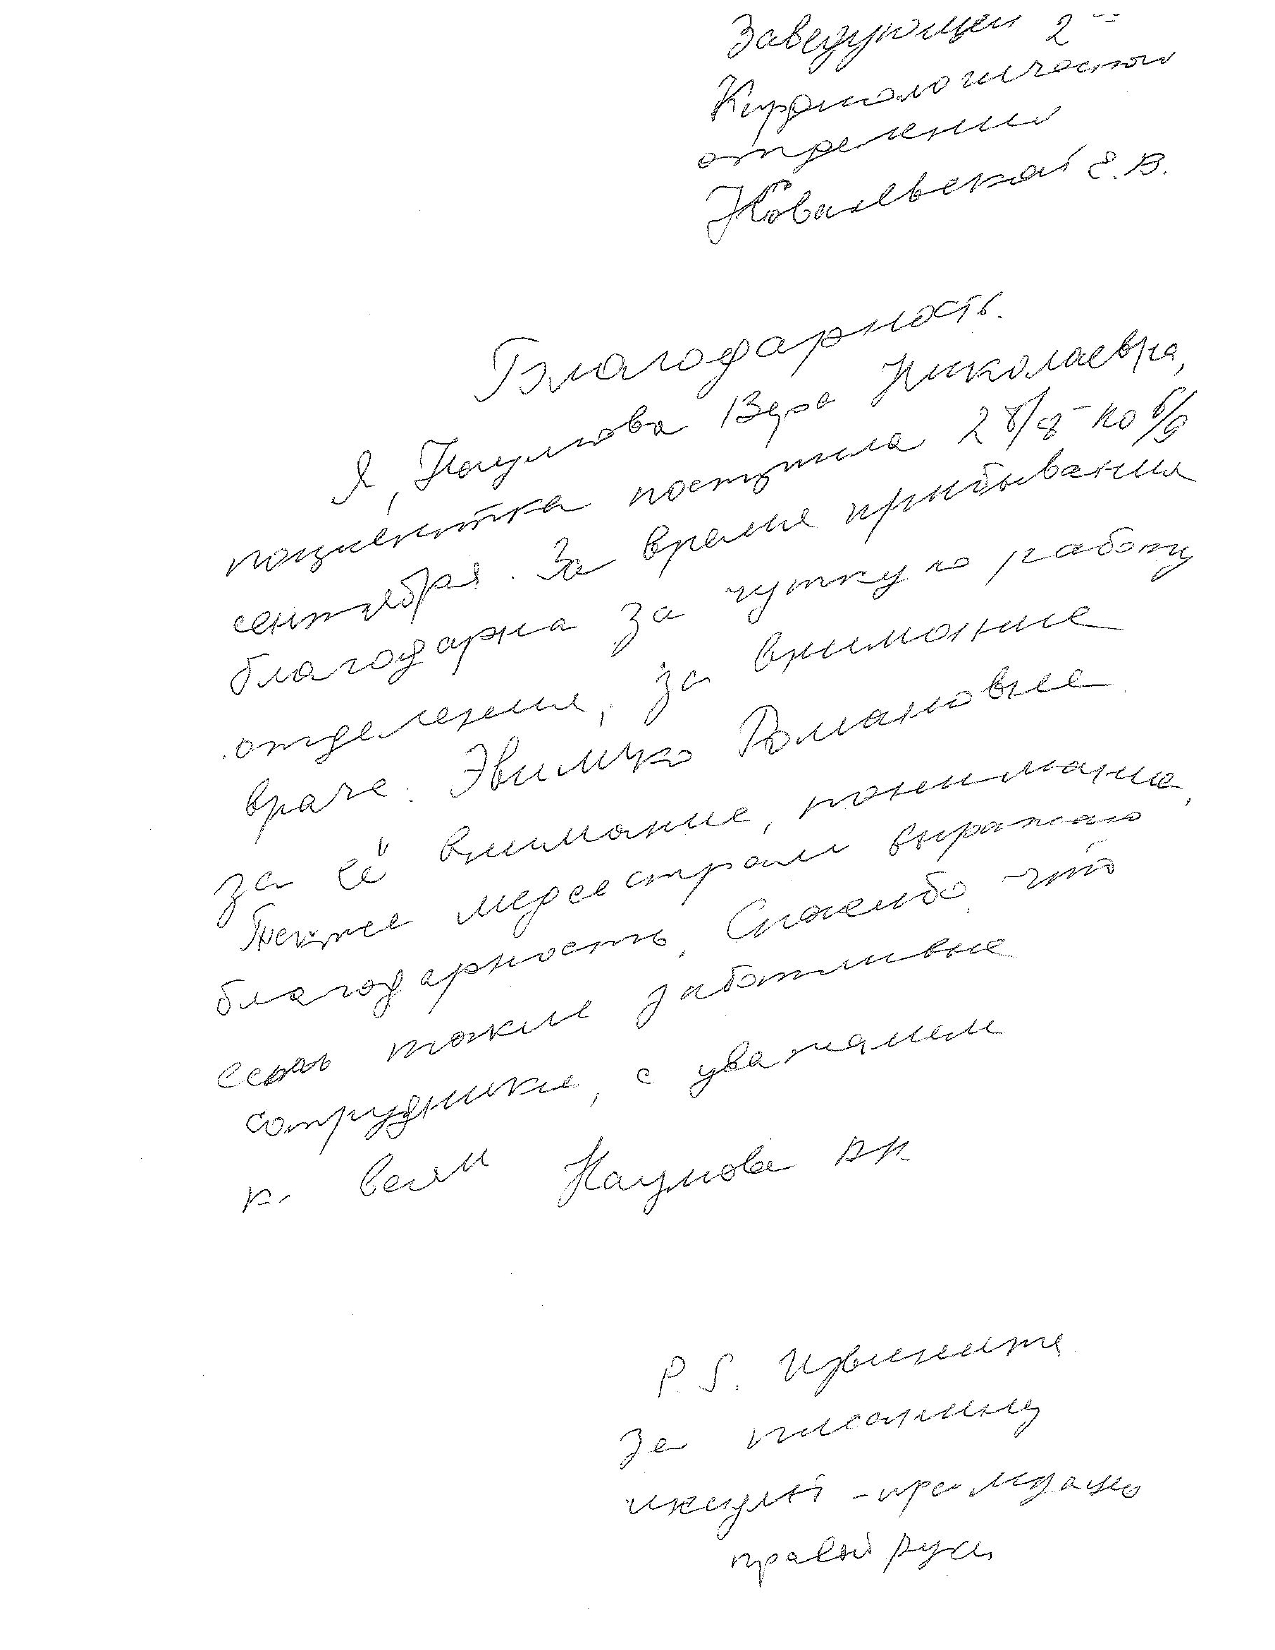 Заведующей 2ым
Кардиологическим
отделении
Ковалевской Е.В.
Благодарность.
Я, Наумова Вера Николаевна,
пациентка поступила 28/8 - по 6/9
сентября. За время прибывания
благодарна за чуткую работу
отделения, за внимание
враче. Эвилицко Романовне
за её внимание, понимание,
Также медсестрам выражаю
благодарность, Спасибо что
есть такие заботливые
сотрудники, с уважанием
к. Вам Наумова ВН
P.S. Извините
за писанину
инсульт - парализовало
правой руки